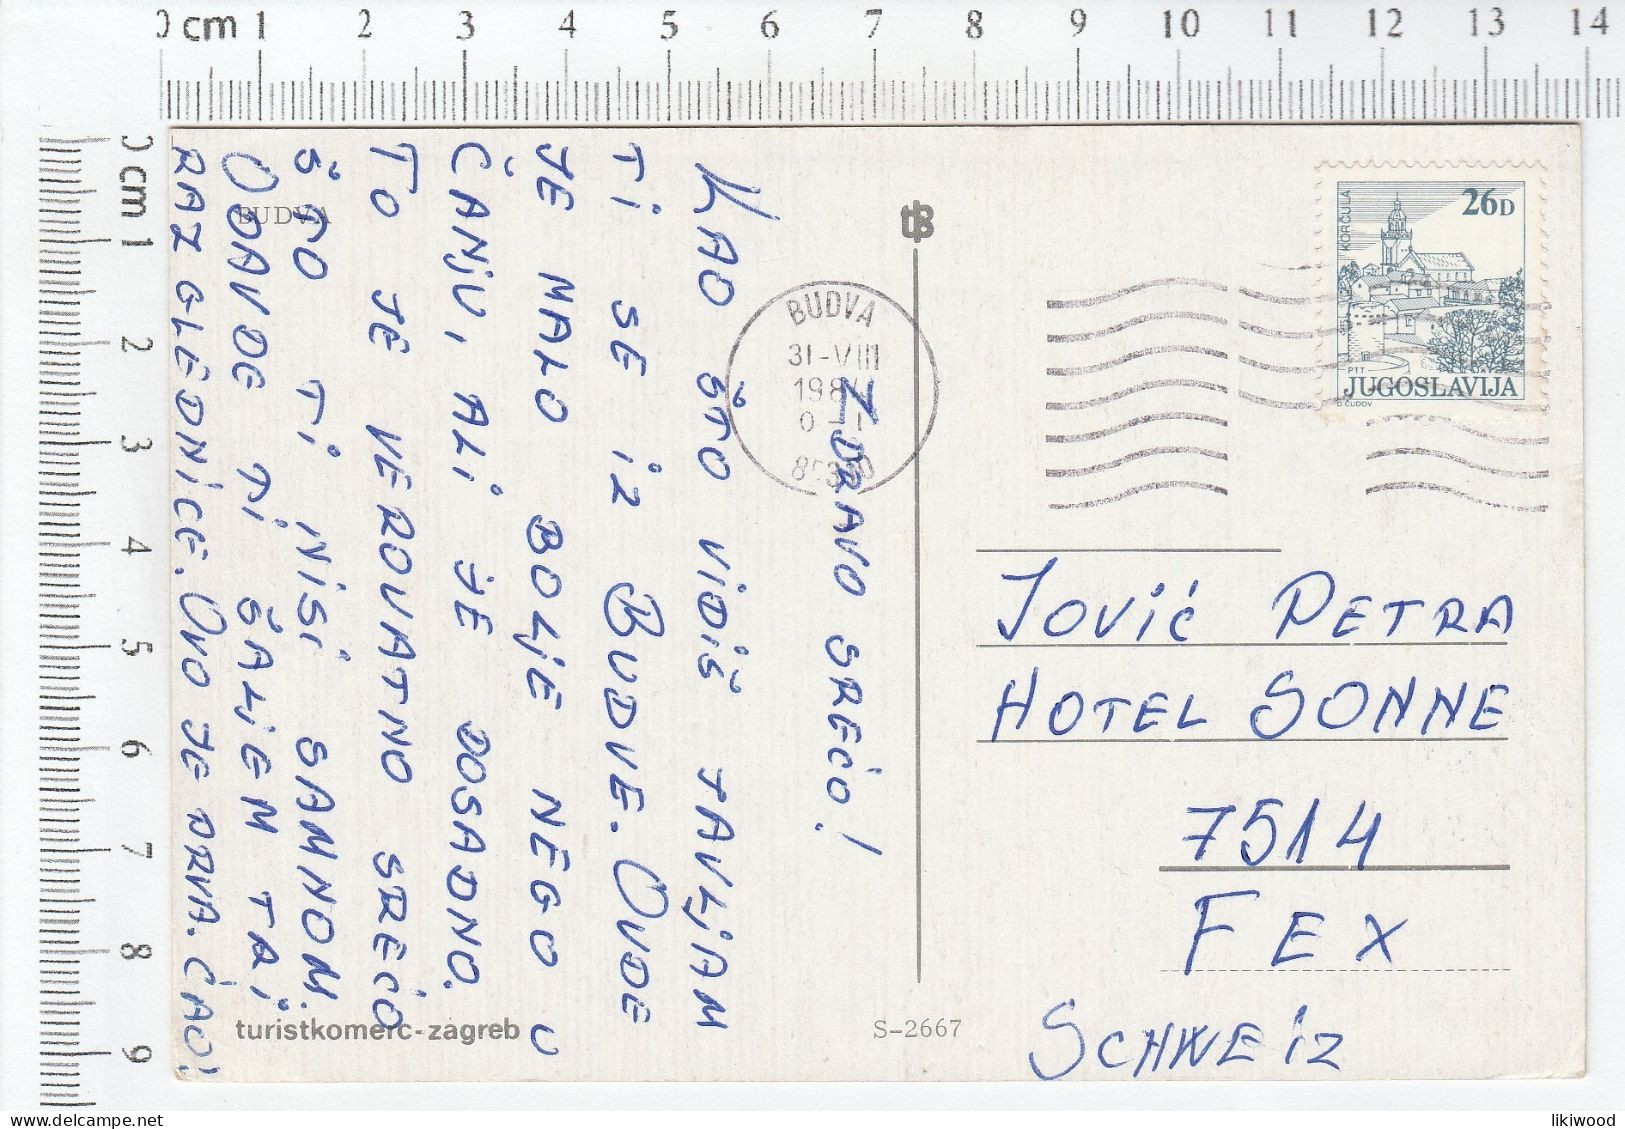 0 cm 1 2 3 4 5 6 7 8 9 10 11 12 13 14
0 cm 1 2 3 4 5 6 7 8 9
BUDVA
ZDRAVO SREĆO!
KAO ŠTO VIDIŠ JAVLJAM
TI SE IZ BUDVE. OVDE
JE MALO BOLJE NEGO U
ČANJU, ALI JE DOSADNO.
TO JE VEROVATNO SREĆO
ŠTO TI NISI SAMNOM.
ODAVDE TI ŠALJEM TRI
RAZGLEDNICE. OVO JE PRVA. ĆAO!
turistkomerc-zagreb
S-2667
BUDVA
31-VIII
KORČULA
26D
PTT
JUGOSLAVIJA
D. ČUDOV
JOVIĆ PETRA
HOTEL SONNE
7514
FEX
SCHWEIZ
likiwood